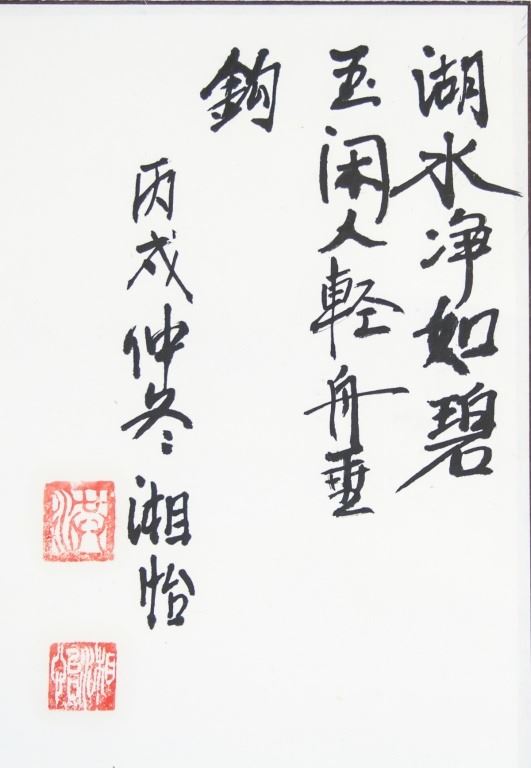 湖水净如碧
玉闲人軽舟垂
鈎
丙戌仲冬湘怡
湘怡